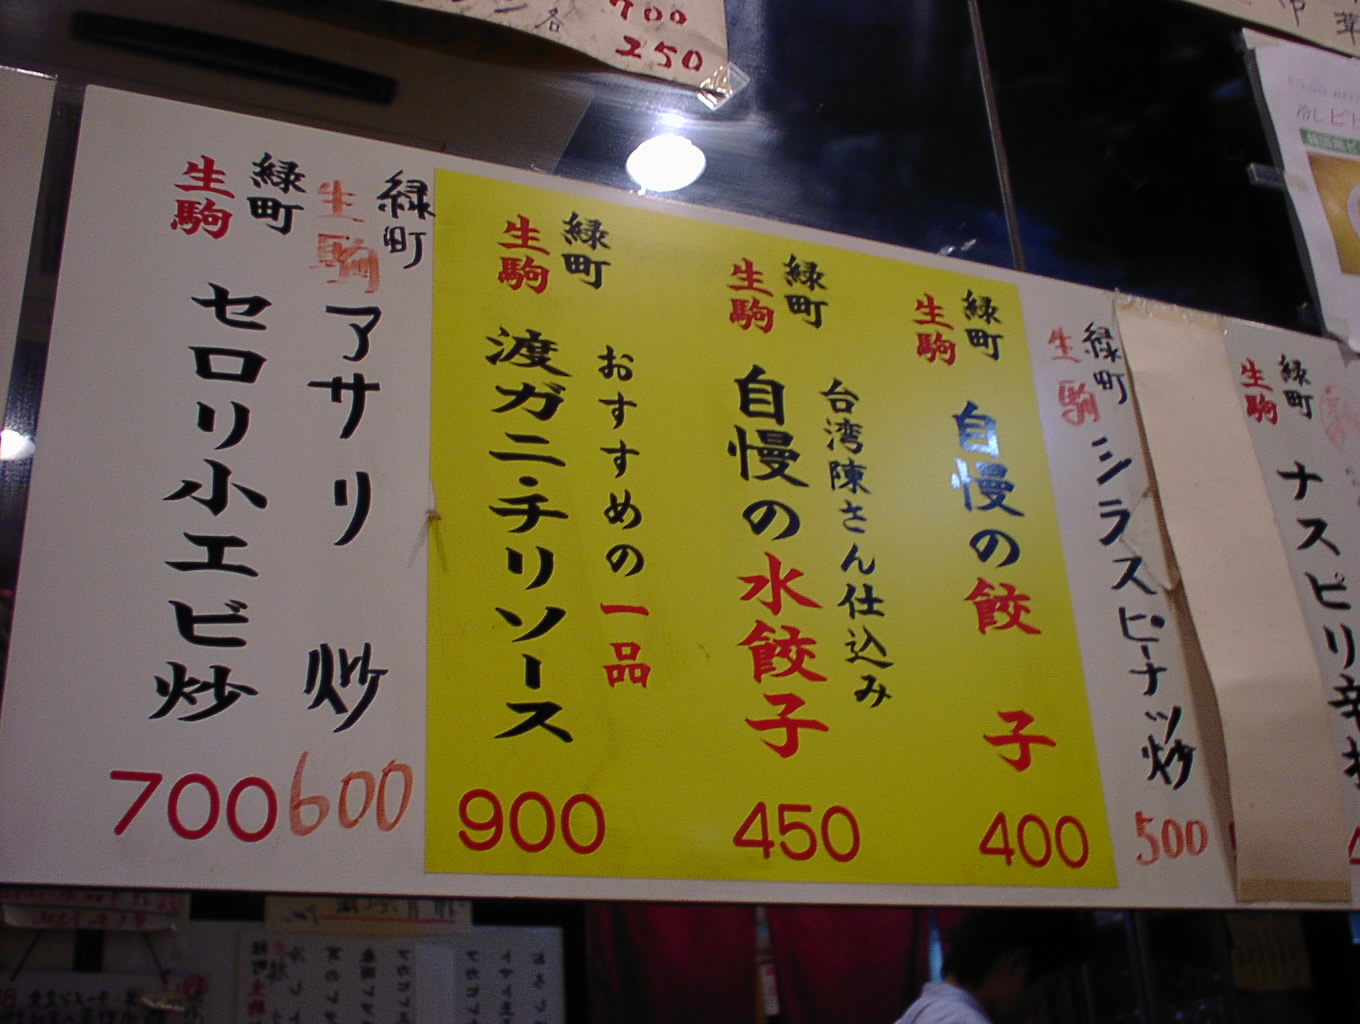 700
250
緑町
生駒
ナスピリ辛
緑町
生駒
シラスピーナッツ炒
500
緑町
生駒
自慢の餃子
400
緑町
生駒
台湾陳さん仕込み
自慢の水餃子
450
緑町
生駒
おすすめの一品
渡ガニ・チリソース
900
緑町
生駒
アサリ炒
600
緑町
生駒
セロリ小エビ炒
700
冷し